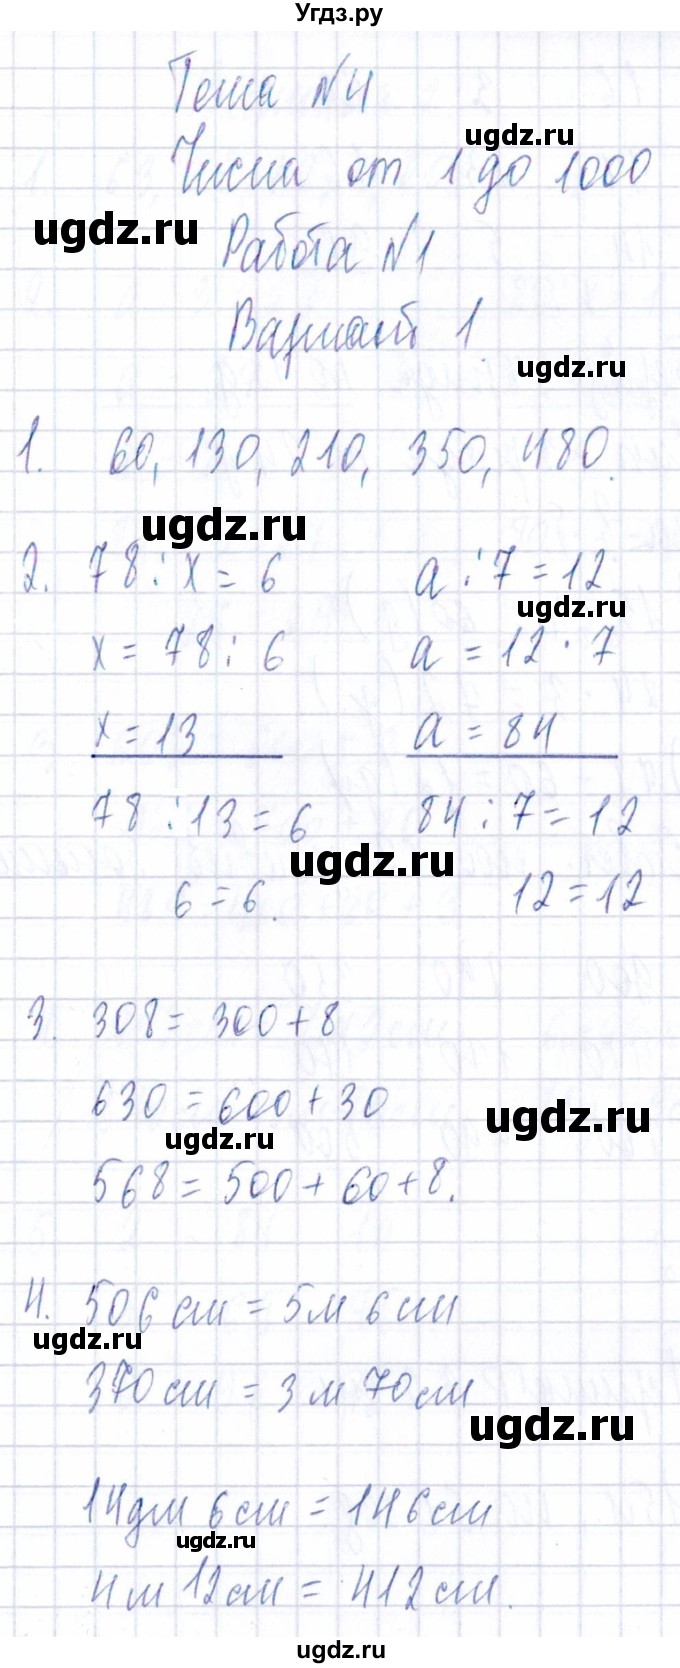 Угдз.ру
Тема №4
ugdz.ru
Числа от 1 до 1000
ugdz.ru
Работа №1
Вариант 1.
ugdz.ru
1. 60, 130, 210, 350, 480.
ugdz.ru
2. 78 : x = 6 a : 7 = 12
ugdz.ru
x = 78 : 6 a = 12 · 7
x = 13 a = 84
78 : 13 = 6 84 : 7 = 12
ugdz.ru
6 = 6. 12 = 12
3. 308 = 300 + 8
630 = 600 + 30
ugdz.ru
ugdz.ru
568 = 500 + 60 + 8.
4. 506 см = 5 м 6 см
ugdz.ru
370 см = 3 м 70 см
ugdz.ru
14 дм 6 см = 146 см
ugdz.ru
4 м 12 см = 412 см.
ugdz.ru